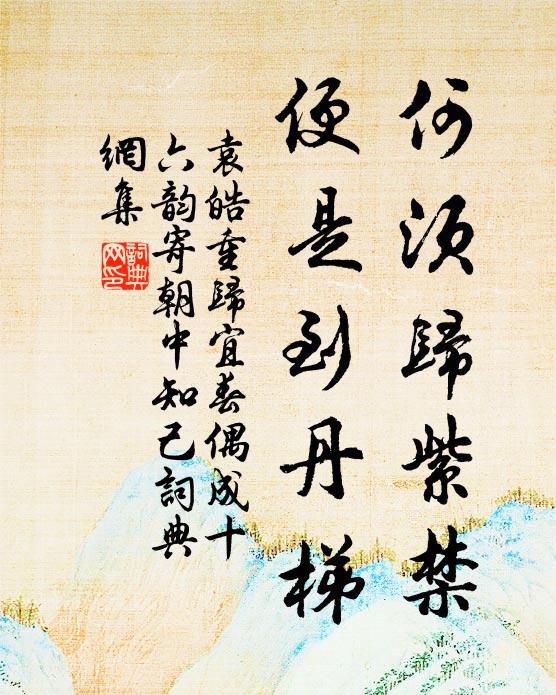 何須歸紫禁
便是到丹梯
袁皓重歸宜春偶成十
六韵寄朝中知己詞典
網集
詞典
网印